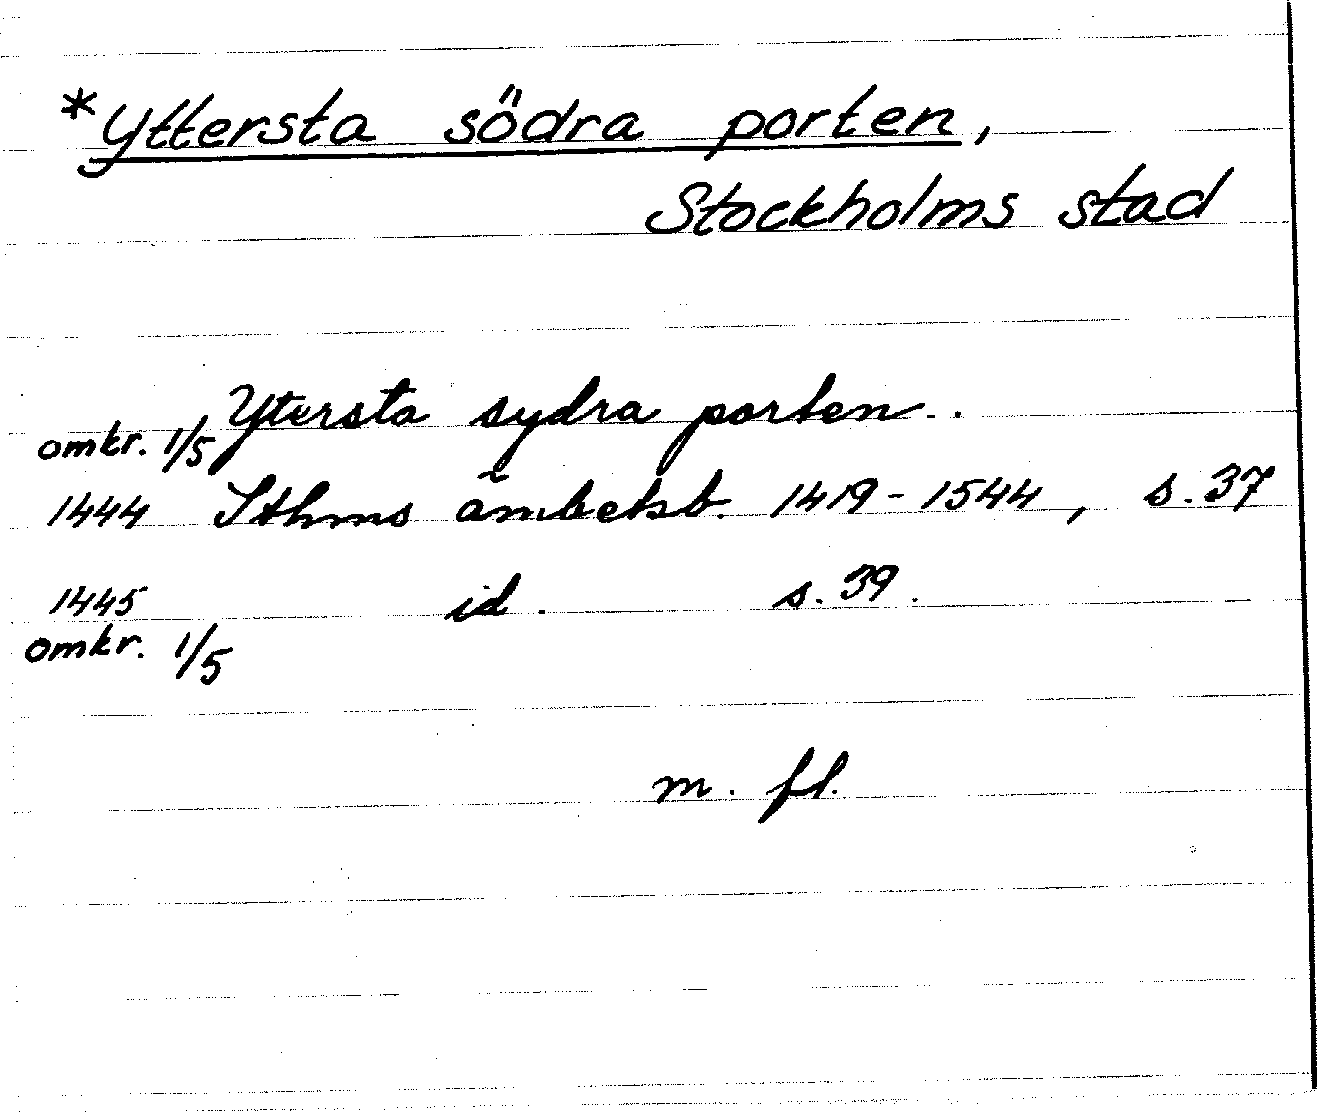 *Yttersta södra porten,
Stockholms stad
Ytersta sydra porten.
omkr. 1/5
1444 Sthms ämbetsb. 1419-1544, s. 37
1445 id. s. 39.
omkr. 1/5
m. fl.